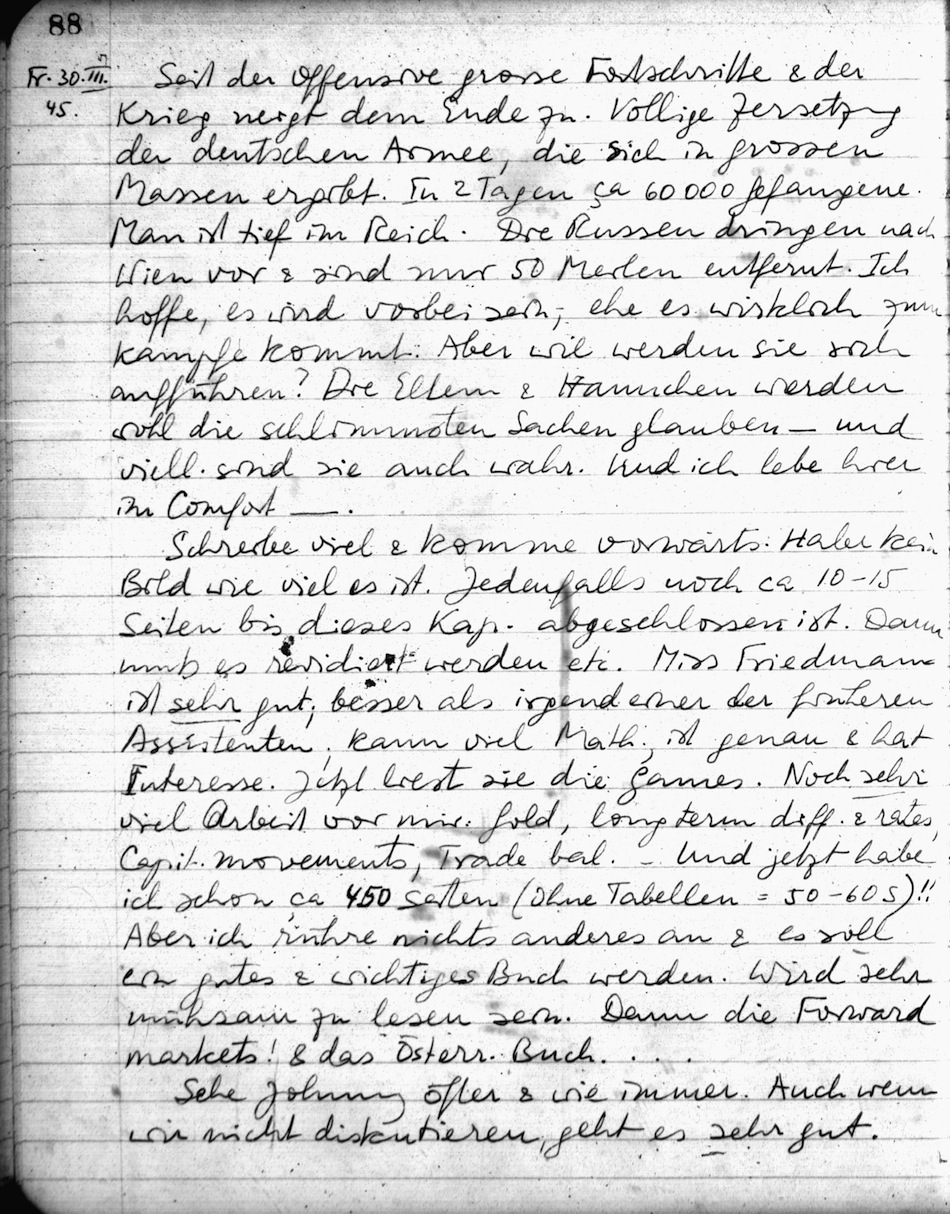 88
Fr. 30.III.
45.
Seit der Offensive grosse Fortschritte & der
Krieg neigt dem Ende zu. Völlige Zersetzung
der deutschen Armee, die sich in grossen
Massen ergibt. In 2 Tagen ca 60 000 Gefangene.
Man ist tief im Reich. Die Russen dringen nach
Wien vor & sind nur 50 Meilen entfernt. Ich
hoffe, es wird vorbei sein, ehe es wirklich zum
Kampfe kommt. Aber wie werden sie sich
aufführen? Die Eltern & Hannchen werden
wohl die schlimmsten Sachen glauben – und
viell. sind sie auch wahr. Und ich lebe hier
im Comfort —.
Schreibe viel & komme vorwärts. Habe kein
Bild wie viel es ist. Jedenfalls noch ca 10–15
Seiten bis dieses Kap. abgeschlossen ist. Dann
muss es revidiert werden etc. Miss Friedman
ist sehr gut, besser als irgendeiner der früheren
Assistenten, kann viel Math., ist genau & hat
Interesse. Jetzt liest sie die Games. Noch sehr
viel Arbeit vor mir. Gold, long term diff. & rates,
Capit. movements, Trade bal. – Und jetzt habe
ich schon ca 450 Seiten (ohne Tabellen = 50–60 S)!!
Aber ich rühre nichts anderes an & es soll
ein gutes & wichtiges Buch werden. Wird sehr
mühsam zu lesen sein. Dann die Forward
markets! & das Österr. Buch. . . .
Sehe Johnny öfter & wie immer. Auch wenn
wir nicht diskutieren, geht es sehr gut.